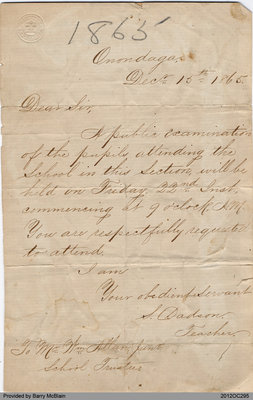 1865
Onondaga,
Dec. 15th 1865.
Dear Sir,
A public examination
of the pupils, attending the
School in this Section, will be
held on Friday, 22nd Inst.
commencing at 9 o'clock A.M.
You are respectfully requested
to attend.
I am
Your obedient servant
S. Dadson,
Teacher
To Mr. Wm
School Trustee
Provided by Barry McBlain
2012DC295